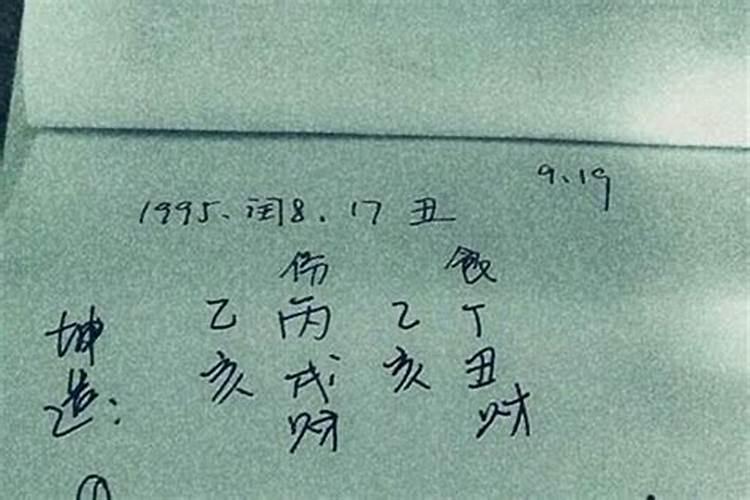 9.19
1995.闰8.17 丑
伤 食
乙 丙 乙 丁
坤造:
亥 戌 亥 丑
财 财